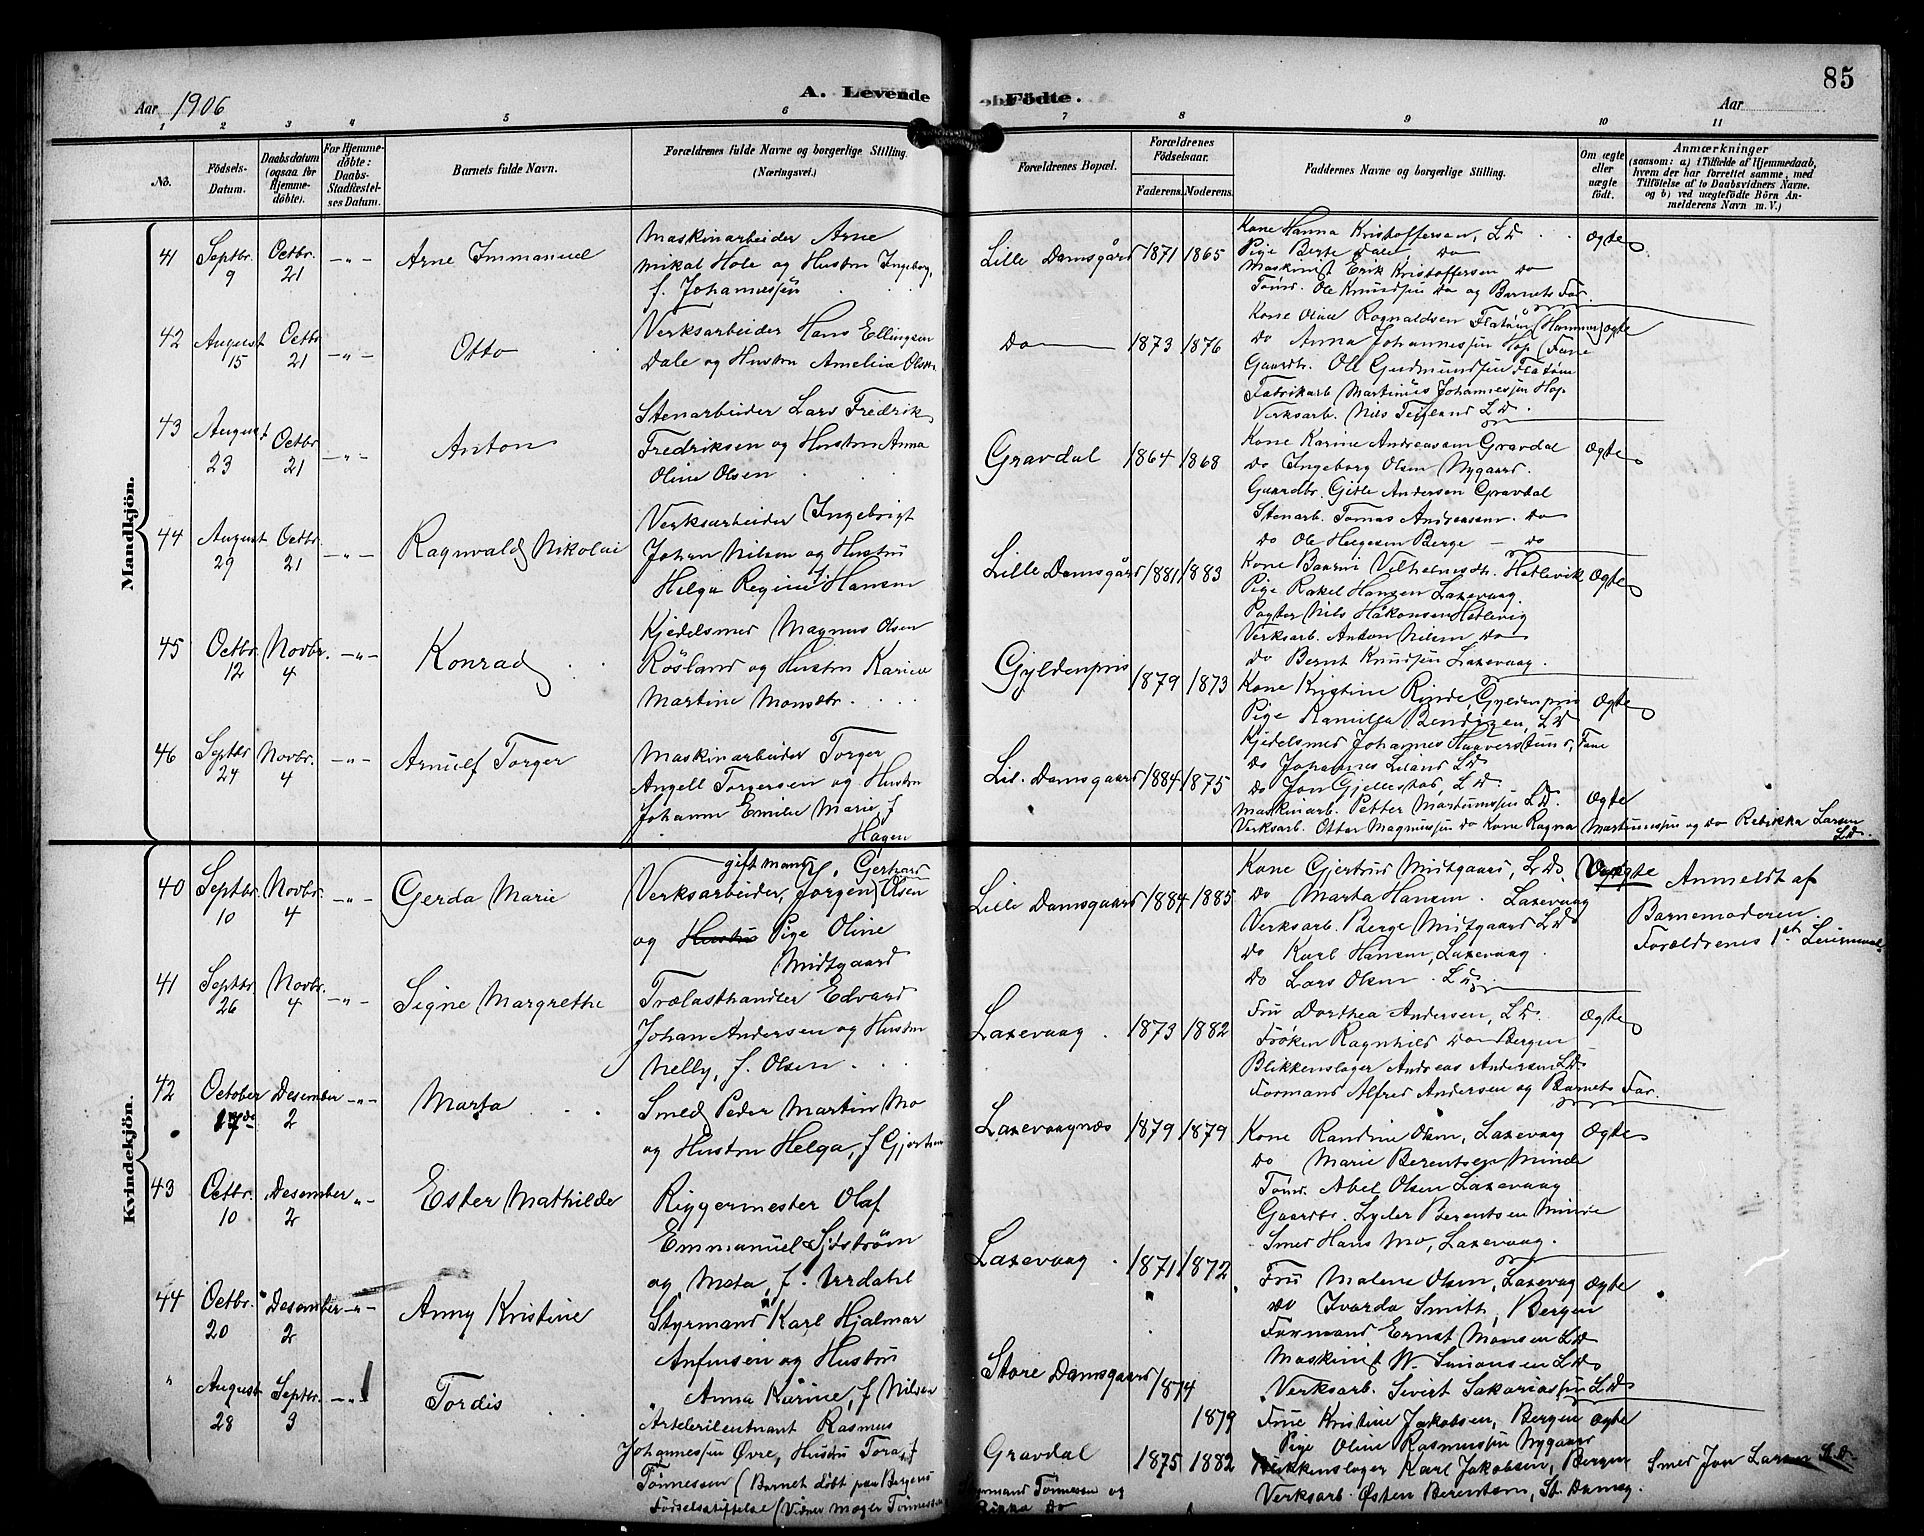 Aar 1906
A. Levende
Födte.
Aar
85
1 2 3 4 5 6 7 8 9 10 11
No.
Födsels-Datum.
Daabsdatum (ogsaa for Hjemme-döbte).
For Hjemme-döbte: Daabs-Stadfæstel-ses Datum.
Barnets fulde Navn.
Forældrenes fulde Navne og borgerlige Stilling.
(Næringsvei.)
Forældrenes Bopæl.
Forældrenes Födselsaar.
Faderens. Moderens.
Faddernes Navne og borgerlige Stilling.
Om ægte eller uægte födt.
Anmærkninger
(saasom: a) i Tilfælde af Hjemmedaab,
hvem der har forrettet samme, med
Tilföielse af to Daabsvidners Navne.
og b) ved uægtefödte Börn An-
melderens Navn m. V.)
Mandkjön.
41 Septbr. 9 Octbr. 21 -"- Arne Immanuel
Maskinarbeider Arne
Mikal Hole og Hustru Ingeborg,
f. Johannessen
Lille Damsgård 1871 1865
Kone Hanna Kristoffersen, L.D.
Pige Berte Dale, Do
Maskinist Erik Kristoffersen Do
Tømd. Ole Knudsen Do og Barnets Far.
Ægte
42 August 15 Octbr 21 -"- Otto
Verksarbeider Hans Ellingsen
Dale og Hustru Amelia Olsdtr
Do 1873 1876
Kone Oline Ragnaldsen Flatøen (Hammer)
Do Anna Johannessen Hop (Fane
Gaardbr. Ole Gudmundsen Flatøen
Fabrikarb. Martinus Johannessen Hop
Verksarb. Nils Teigland L.D.
Ægte
43 August 23 Octbr. 21 -"- Anton
Stenarbeider Lars Fredrik
Fredriksen og Hustru Anna
Oline Olsen
Gravdal 1864 1868
Kone Karine Andreassen Gravdal
Do Ingeborg Olsen Nygaard.
Gaardbr. Gitle Andersen Gravdal
Stenarb. Tomas Andreassen Do
Do Ole Helgesen Berge - Do
Ægte
44 August 29 Octbr. 21 -"- Ragnvald Nikolai
Verksarbeider Ingebrigt
Johan Nilsen og Hustru
Helga Regine Hansen
Lille Damsgård 1881 1883
Kone Vilhelmsdtr. Hetlevik
Pige Rakel Hansen Laxevaag.
Nils Håkonsen Hetlevig
Verksarb. Anton Nilsen Do
Do Bernt Knudsen Laxevaag.
Ægte
45 Octbr. 12 Novbr. 4 -"- Konrad
Kjedelsmed Magnus Olsen
Røsland og Hustru Karine
Martine Monsdtr.
Gyldenpris 1879 1873
Kone Kristine Rinde, Gyldenpris
Pige Kamilla Bendixen, L.D
Kjedelsmed Johannes Haaverstun, Fane
Do Johannes Leland L.D
Do Jon Gjellestad, L.D
Ægte
46 Septbr 24 Novbr. 4 -"- Arnulf Torger
Maskinarbeider Torger
Angell Torgersen og Hustru
Johanne Emilie Marie, f.
Hagen
Lil. Damsgaard 1884 1875
Maskinarb. Petter Martinussen L.D.
Verksarb. Otter Magnussen Do Kone Ragna Martinussen og Do Rebikka Larsen
L.D.
Ægte
Kvindekjön.
40 Septbr. 10 Novbr. 4 -"- Gerda Marie
gift mand H. Gerhard
Verksarbeider, Jørgen Olsen
og Hustru Pige Oline
Midtgaard
Lille Damsgaard 1884 1885
Kone Gjertrud Midtgaard, L.D.
Do Marta Hansen. Laxevaag
Verksarb. Berge Midtgaard L.D
Do Karl Hansen, Laxevaag.
Do Lars Olsen. L.D
Uægte
Anmeldt af
Barnemoderen.
Forældrenes 1ste Leiermaal.
41 Septbr. 26 Novbr. 4 -"- Signe Margrethe
Trælasthandler Edvard
Johan Andersen og Hustru
Nelly, f. Olsen.
Laxevaag. 1873 1882
Fru Dorthea Andersen, L.D.
Frøken Ragnhild Do Bergen
Blikkenslager Andreas Andersen L.D.
Formand Alfred Andersen og Barnets Far.
Ægte
42 October 17de Desember 2 -"- Marta
Smed Peder Martin Mo
og Hustru Helga, f. Gjertsen
Laxevaagnæs 1879 1879
Kone Randine Olsen, Laxevaag
Do Marie Berentsen Minde
Tømd. Abel Olsen Laxevaag
Gaardbr. Lyder Berentsen Minde
Smed Hans Mo, Laxevaag.
Ægte
43 Octbr. 10 Desember 2 "- Ester Mathilde
Riggermester Olaf
Emmanuel Sjöström
og Meta, f. Urdahl
Laxevaag 1871 1872
Fru Malene Olsen, Laxevaag
Do Ivarda Smith, Bergen
Formand Ernst Monsen L.D.
Maskinist W. Simonsen L.D.
Verksarb. Sivert Sakariassen L.D.
Ægte
44 Octbr. 20 Desember 2 -"- Anny Kristine
Styrmand Karl Hjalmar
Anfinsen og Hustru
Anna Karine, f. Nilsen
Store Damsgaard 1874
1879
Frue Kristine Jakobsen, Bergen
Pige Oline Rasmussen Nygaard
Blikkenslager Karl Jakobsen, Bergen
Verksarb. Østen Berentsen, St. Damsg.
Ægte
Smed Jon Larsen L.D.
" August 28 Septbr. 9 -"- Tordis
Artelerileutnant Rasmus
Johannessen Øvre, Hustru Tora, f.
Tønnessen (Barnet døbt paa Bergens
Fødselsstiftelse (Vidner Tønnessen
Gravdal 1875 1882
Tønnessen og
Do